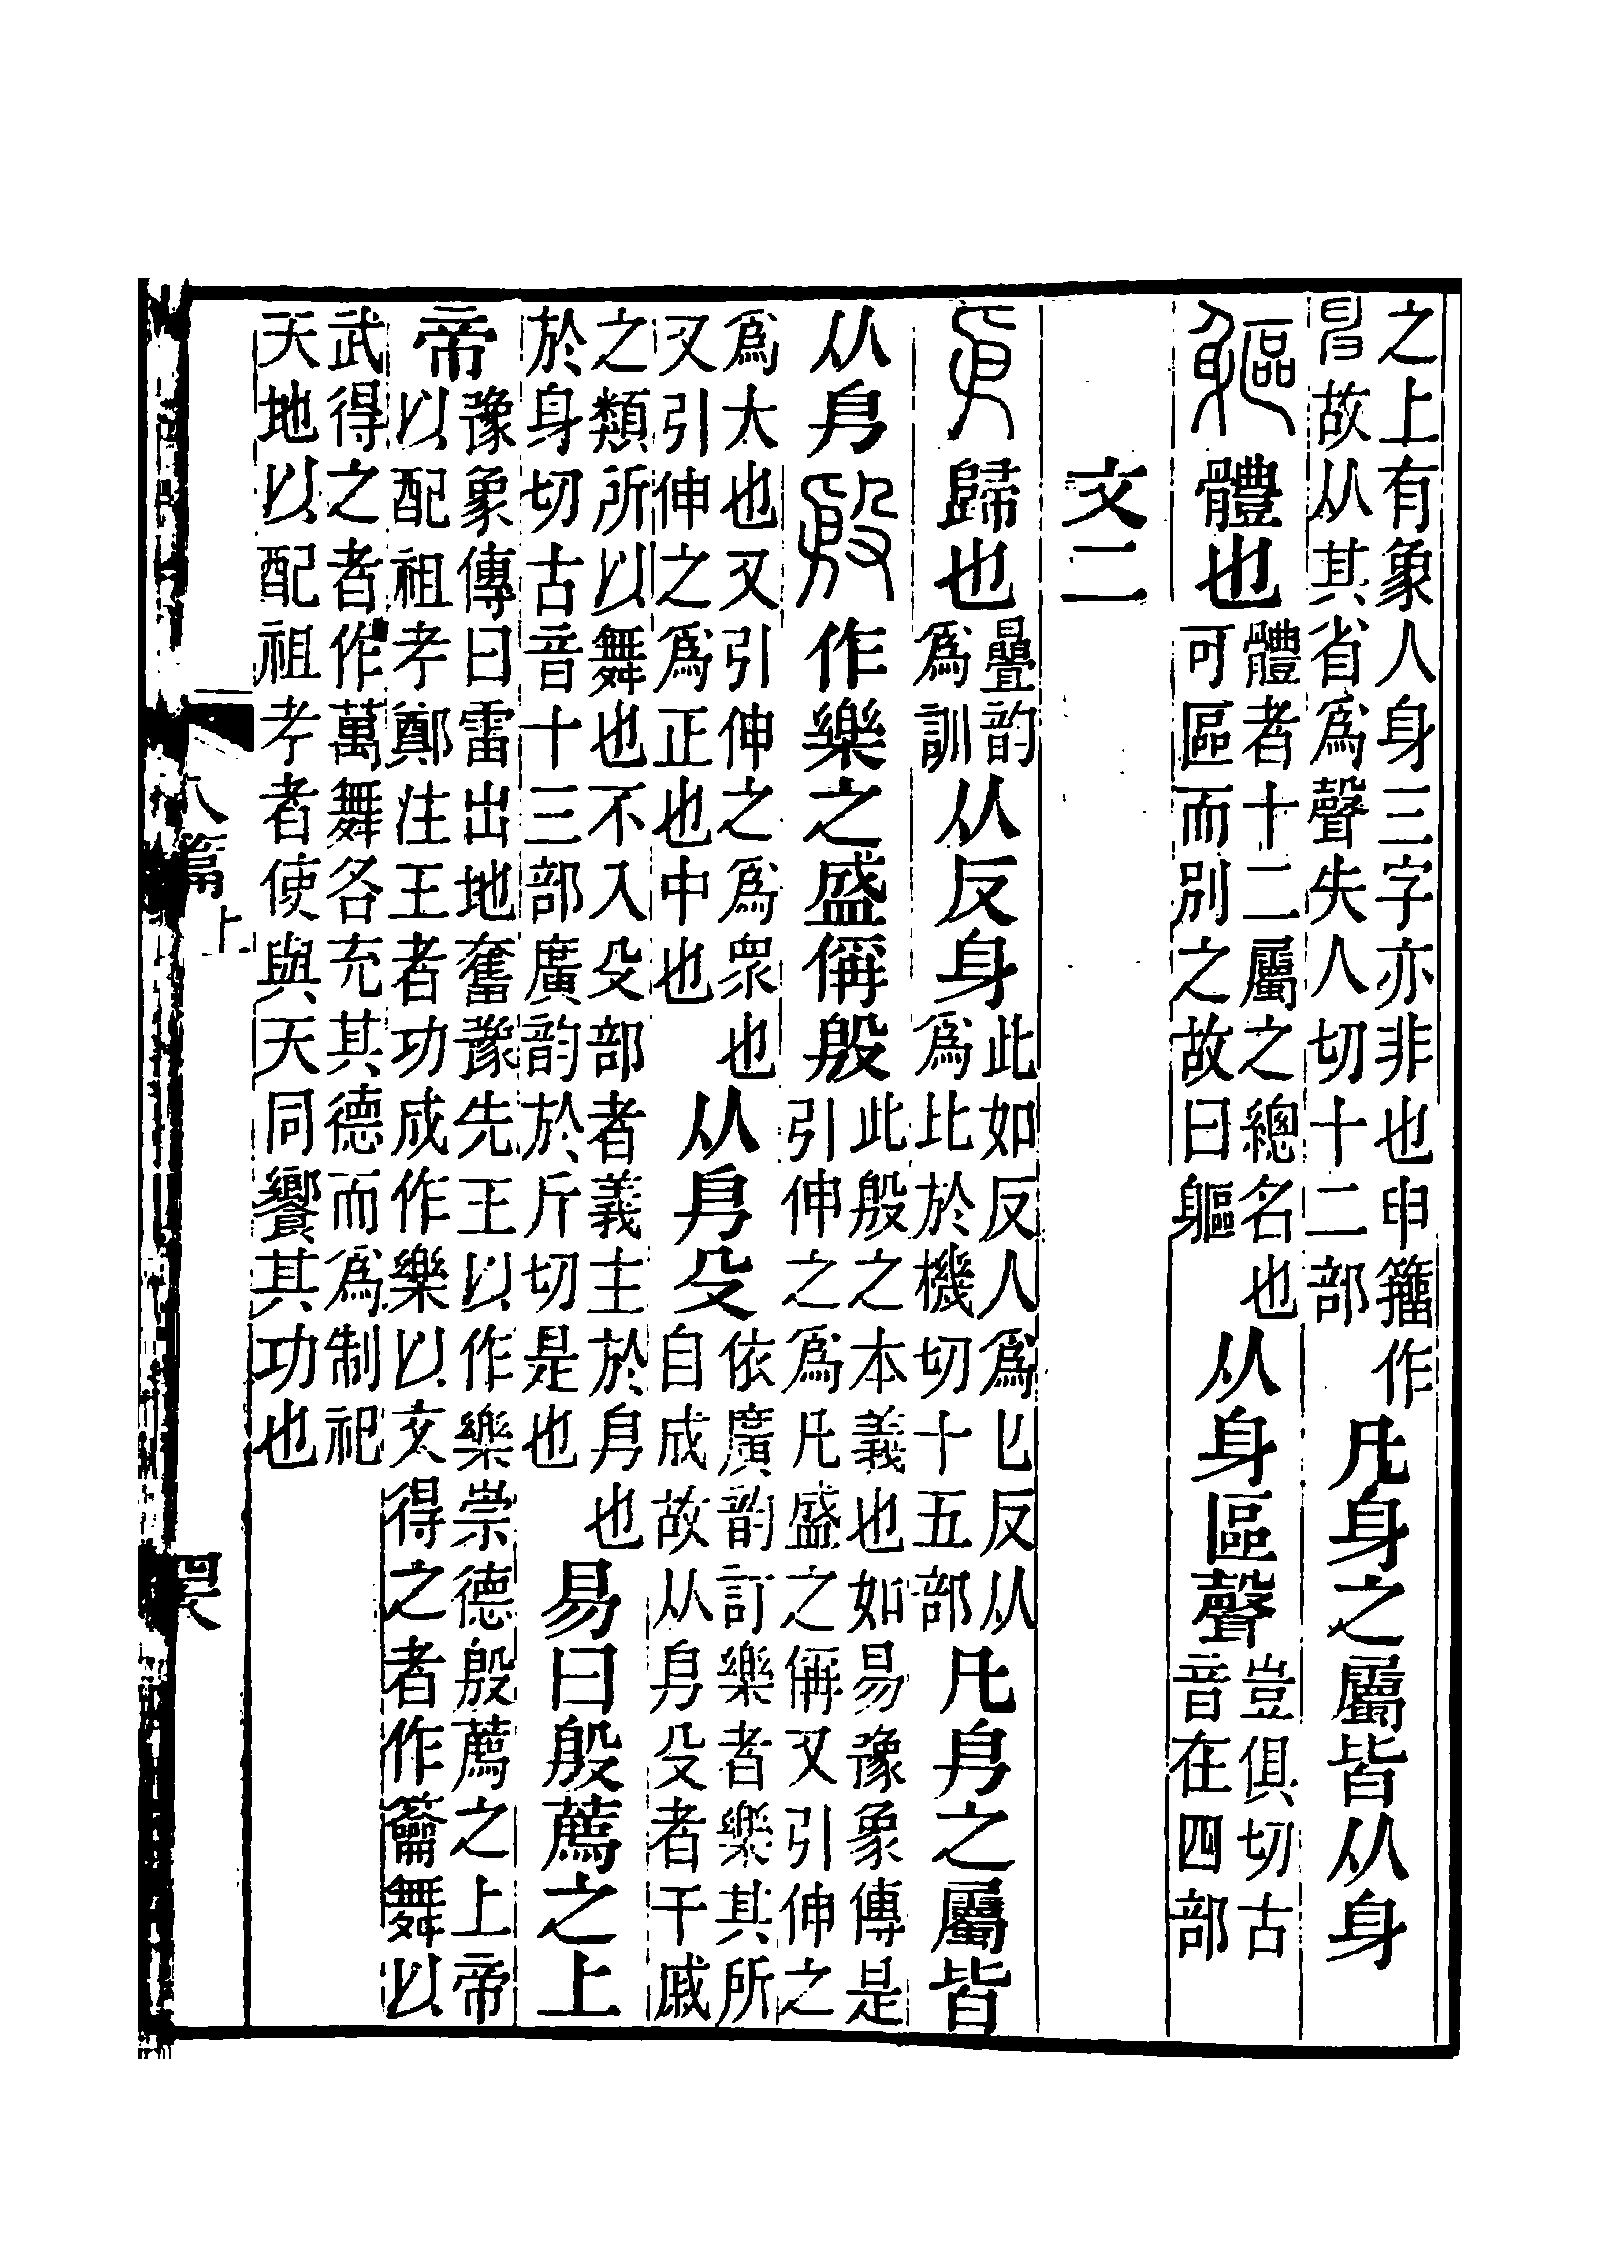 之上有象人身三字亦非也申籀作𦥔故从其省爲聲失人切十二部凡身之屬皆从身
軀體也體者十二屬之總名也可區而別之故曰軀从身區聲豈俱切古音在四部
文二
㐆歸也疊韵爲訓从反身此如反人爲匕反从爲比於機切十五部凡㐆之屬皆
从㐆殷作樂之盛偁殷此殷之本義也如易豫象傳是引伸之爲凡盛之偁又引伸之
爲大也又引伸之爲眾也又引伸之爲正也中也从㐆殳依廣韵訂樂者樂其所自成故从㐆殳者干戚
之類所以舞也不入殳部者義主於㐆也於身切古音十三部廣韵於斤切是也易曰殷薦之上
帝豫象傳曰雷出地奮豫先王以作樂崇德殷薦之上帝以配祖考鄭注王者功成作樂以文得之者作籥舞以
武得之者作萬舞各充其德而爲制祀天地以配祖考者使與天同饗其功也
八篇上